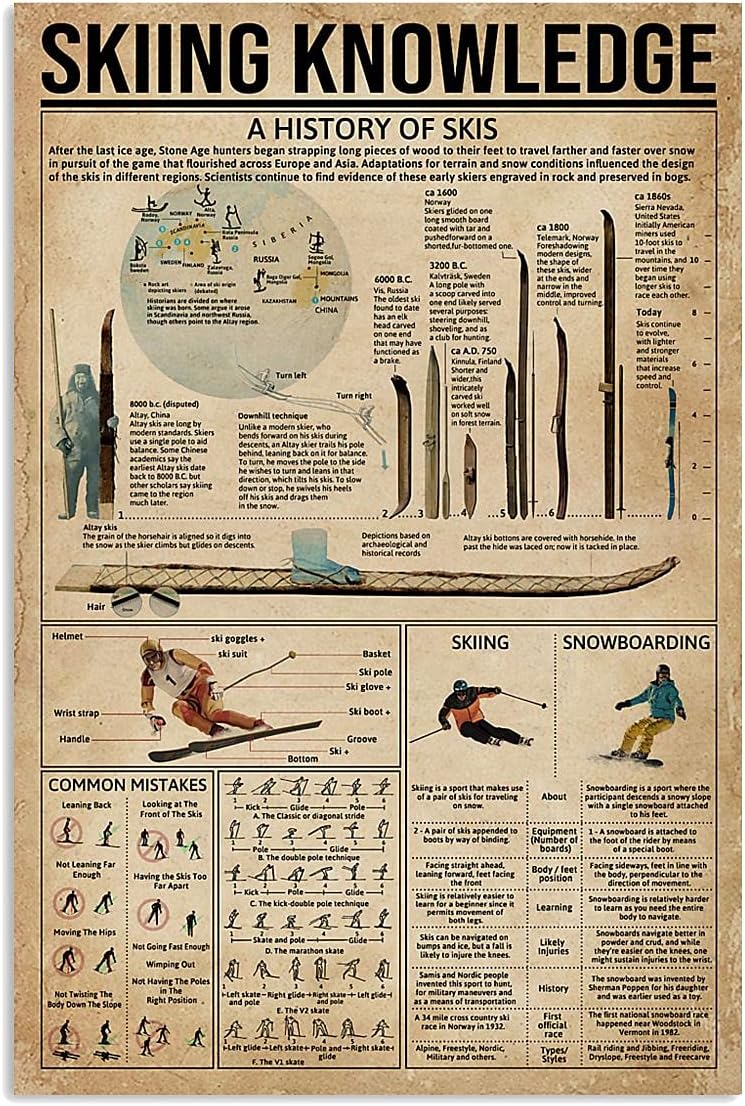 SKIING KNOWLEDGE
A HISTORY OF SKIS
After the last ice age, Stone Age hunters began strapping long pieces of wood to their feet to travel farther and faster over snow
in pursuit of the game that flourished across Europe and Asia. Adaptations for terrain and snow conditions influenced the design
of the skis in different regions. Scientists continue to find evidence of these early skiers engraved in rock and preserved in bogs.
Rodoy,
Norway
NORWAY
Alta,
Norway
SCANDINAVIA
Kola Peninsula
Russia
SIBERIA
Böksta
Sweden
SWEDEN
FINLAND
Zalavruga,
Russia
RUSSIA
Segse Gol,
Mongolia
Baga Oigor Gol,
Mongolia
MONGOLIA
KAZAKHSTAN
MOUNTAINS
CHINA
Rock art
depicting skiers
Area of ski origin
(debated)
Historians are divided on where
skiing was born. Some argue it arose
in Scandinavia and northwest Russia,
though others point to the Altay region.
8000 b.c. (disputed)
Altay, China
Altay skis are long by
modern standards. Skiers
use a single pole to aid
balance. Some Chinese
academics say the
earliest Altay skis date
back to 8000 B.C. but
other scholars say skiing
came to the region
much later.
Turn left
Turn right
Downhill technique
Unlike a modern skier, who
bends forward on his skis during
descents, an Altay skier trails his pole
behind, leaning back on it for balance.
To turn, he moves the pole to the side
he wishes to turn and leans in that
direction, which tilts his skis. To slow
down or stop, he swivels his heels
off his skis and drags them
in the snow.
6000 B.C.
Vis, Russia
The oldest ski
found to date
has an elk
head carved
on one end
that may have
functioned as
a brake.
3200 B.C.
Kalvträsk, Sweden
A long pole with
a scoop carved into
one end likely served
several purposes:
steering downhill,
shoveling, and as
a club for hunting.
ca A.D. 750
Kinnula, Finland
Shorter and
wider,this
intricately
carved ski
worked well
on soft snow
in forest terrain.
ca 1600
Norway
Skiers glided on one
long smooth board
coated with tar and
pushedforward on a
shorted,fur-bottomed one.
ca 1800
Telemark, Norway
Foreshadowing
modern designs,
the shape of
these skis, wider
at the ends and
narrow in the
middle, improved
control and turning.
ca 1860s
Sierra Nevada,
United States
Initially American
miners used
10-foot skis to
travel in the
mountains, and
over time they
began using
longer skis to
race each other.
Today
Skis continue
to evolve,
with lighter
and stronger
materials
that increase
speed and
control.
10
8
6
4
2
0
1
2
3
4
5
6
Altay skis
The grain of the horsehair is aligned so it digs into
the snow as the skier climbs but glides on descents.
Depictions based on
archaeological and
historical records
Altay ski bottoms are covered with horsehide. In the
past the hide was laced on; now it is tacked in place.
Hair
Snow
Helmet
ski goggles +
ski suit
Basket
Ski pole
Ski glove +
Wrist strap
Ski boot +
Handle
Groove
Ski +
Bottom
1
COMMON MISTAKES
Leaning Back
Looking at The
Front of The Skis
Not Leaning Far
Enough
Having the Skis Too
Far Apart
Moving The Hips
Not Going Fast Enough
Wimping Out
Not Twisting The
Body Down The Slope
Not Having The Poles
in The
Right Position
1 2 3 4 5 6
Kick Glide Pole
A. The Classic or diagonal stride
1 2 3 4 5 6
Pole Glide
B. The double pole technique
1 2 3 4 5 6
Kick Pole Glide
C. The kick-double pole technique
1 2 3 4 5 6
Skate and pole Glide
D. The marathon skate
1 2 3 4 5 6
Left skate Right glide Right skate Left glide
and pole and pole
E. The V2 skate
1 2 3 4 5 6
Left glide Left skate Pole and Right glide
right skate
F. The V1 skate
SKIING
SNOWBOARDING
Skiing is a sport that makes use
of a pair of skis for traveling
on snow.
About
Snowboarding is a sport where the
participant descends a snowy slope
with a single snowboard attached
to his feet.
2 - A pair of skis appended to
boots by way of binding.
Equipment
(Number of
boards)
1 - A snowboard is attached to
the foot of the rider by means
of a special boot.
Facing straight ahead,
leaning forward, feet facing
the front
Body / feet
position
Facing sideways, feet in line with
the body, perpendicular to the
direction of movement.
Skiing is relatively easier to
learn for a beginner since it
permits movement of
both legs.
Learning
Snowboarding is relatively harder
to learn as you need the entire
body to navigate.
Skis can be navigated on
bumps and ice, but a fall is
likely to injure the knees.
Likely
Injuries
Snowboards navigate better in
powder and crud, and while
they're easier on the knees, one
might sustain injuries to the wrist.
Samis and Nordic people
invented this sport to hunt,
for military maneuvers and
as a means of transportation
History
The snowboard was invented by
Sherman Poppen for his daughter
and was earlier used as a toy.
A 34 mile cross country ski
race in Norway in 1932.
First
official
race
The first national snowboard race
happened near Woodstock in
Vermont in 1982.
Alpine, Freestyle, Nordic,
Military and others.
Types/
Styles
Rail riding and Jibbing, Freeriding,
Dryslope, Freestyle and Freecarve